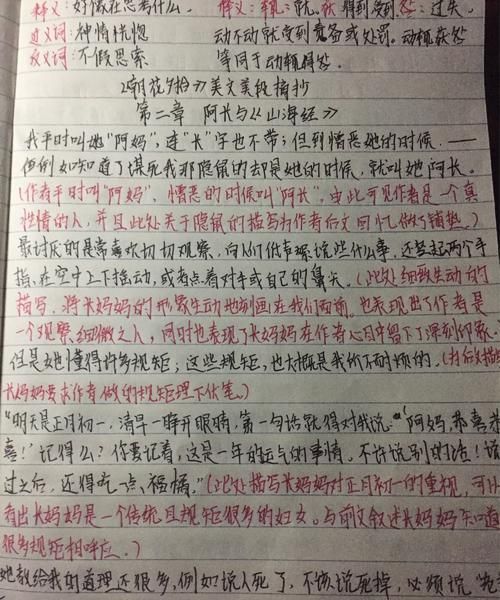 释义：好像在思考什么。 释义：辄：就。获 得到受到 咎：过失。
近义词：神情恍惚 动不动就受到责备或处罚。动辄获咎
反义词：不假思索 等同于动辄得咎。
《朝花夕拾》美文美段摘抄
第二章 阿长与《山海经》
我平时叫她"阿妈"，连"长"字也不带；但到憎恶她的时候，——
例如知道了谋死我那隐鼠的却是她的时候，就叫她阿长。
(作者平时叫"阿妈"，憎恶的时候叫"阿长"。由此可见作者是一个真
性情的人，并且此处关于隐鼠的描写为作者后文回忆做了铺垫。)
最讨厌的是常喜欢切切观察，向人们低声絮说些什么事，还竖起两个手
指，在空中上下摇动，或者点着对手或自己的鼻尖。(此处细致生动的
描写，将长妈妈的形象生动地刻画在我们面前。也表现出了作者是
一个观察细微之人，同时也表现了长妈妈在作者心目中留下了深刻印象
但是她懂得许多规矩；这些规矩，也大概是我所不耐烦的。(为后长描
长妈妈要求作者做的规矩埋下伏笔。)
"明天是正月初一，清早一睁开眼睛，第一句话就得对我说："阿妈，恭喜恭
喜！'记得么？你要记着，这是一年的运气的事情。不许说别的话！说
过之后，还得吃一点福橘。"(此处描写长妈妈对正月初一的重视，可以
看出长妈妈是一个传统且规矩很多的妇女。与前文叙述长妈妈知道
很多规矩相呼应。)
她教给我的道理还很多，例如说人死了，不该说死掉，必须说"老